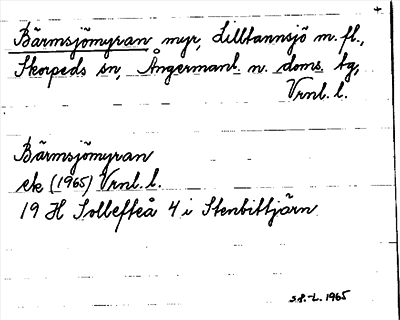 Bärmsjömyran myr, Lilltannsjö m. fl.,
Skorpeds sn, Ångermanl. n. doms. tg,
Vrnl. l.
Bärmsjömyran
ek (1965) Vrnl. l.
19 H Sollefteå 4 i Stenbittjärn
S.P.-L. 1965